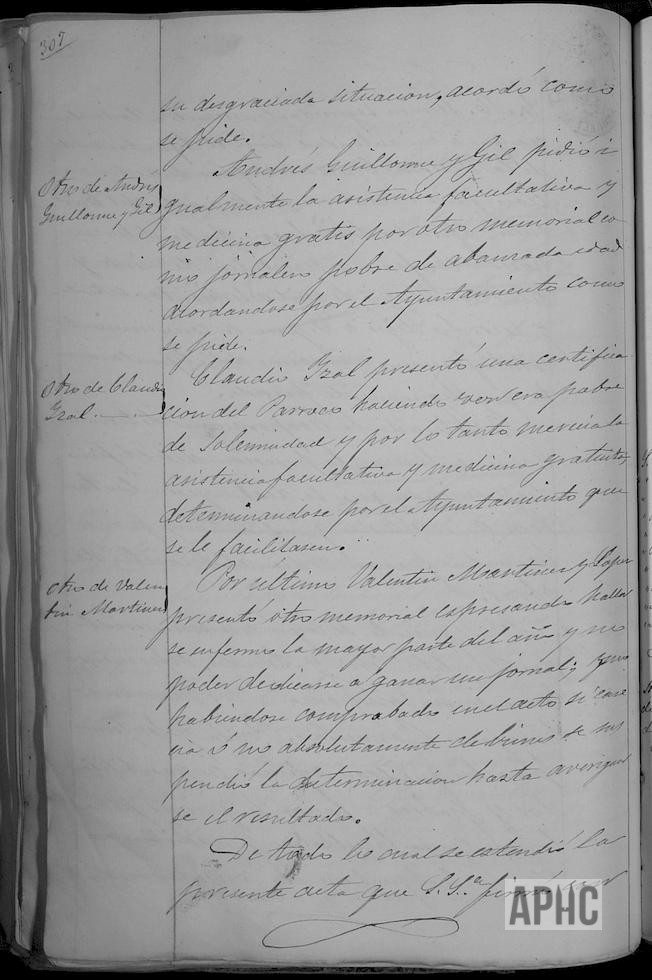 307
su desgraciada situacion, acordó como
se pide.
Otro de Andres
Guillorme y Gil
Andrés Guillorme y Gil pidió i
gualmente la asistencia facultativa y
medicina gratis por otro memorial co
mo jornalero pobre de abanzada edad
acordandose por el Ayuntamiento como
se pide.
Otro de Claudio
Izal
Claudio Izal presentó una certifica
cion del Parroco haciendo ver era pobre
de Solemnidad y por lo tanto merecia la
asistencia facultativa y medicina gratuita,
determinandose por el Ayuntamiento que
se le facilitasen.
Otro de Valen
tin Martinez
Por último Valentin Martinez y
presentó otro memorial espresando hallar
se enfermo la mayor parte del año y no
poder dedicarse a ganar un jornal; y no
habiendose comprobado en el acto si care
cia ó no absolutamente de bienes se sus
pendió la determinacion hasta averiguar
se el resultado.
De todo lo cual se estendió la
presente acta que S.S.ª firmó
APHC